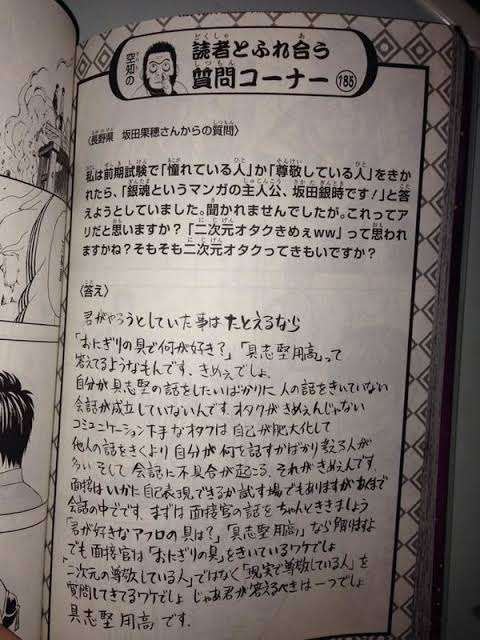 空知の
読者とふれ合う
質問コーナー
185
〈長野県　坂田果穂さんからの質問〉
私は前期試験で「憧れている人」か「尊敬している人」をきか
れたら、「銀魂というマンガの主人公、坂田銀時です!」と答
えようとしていました。聞かれませんでしたが。これってア
リだと思いますか?「二次元オタクきめぇww」って思われ
ますかね?そもそも二次元オタクってきもいですか?
〈答え〉
君がやろうとしていた事はたとえるなら
「おにぎりの具で何が好き?」「具志堅用高」って
答えてるようなもんです、きめぇでしょ。
自分が具志堅の話をしたいばかりに人の話をきいていない
会話が成立していないんです。オタクがきめぇんじゃない
コミュニケーション下手なオタクは自己が肥大化して
他人の話をきくより自分が何を話すかばかり考える人が
多い そして会話に不具合が起こる。それがきめぇんです。
面接はいかに自己表現できるか試す場でもありますがあくまで
会話の中でです。まずは面接官の話をちゃんとききましょう
「君が好きなアフロの具は?」「具志堅用高」なら解りますよ
でも面接官は「おにぎりの具」をきいているワケでしょ
「二次元の尊敬している人」ではなく「現実で尊敬している人」を
質問してきてるワケでしょ じゃあ君が答えるべきは一つでしょ
具志堅用高です。